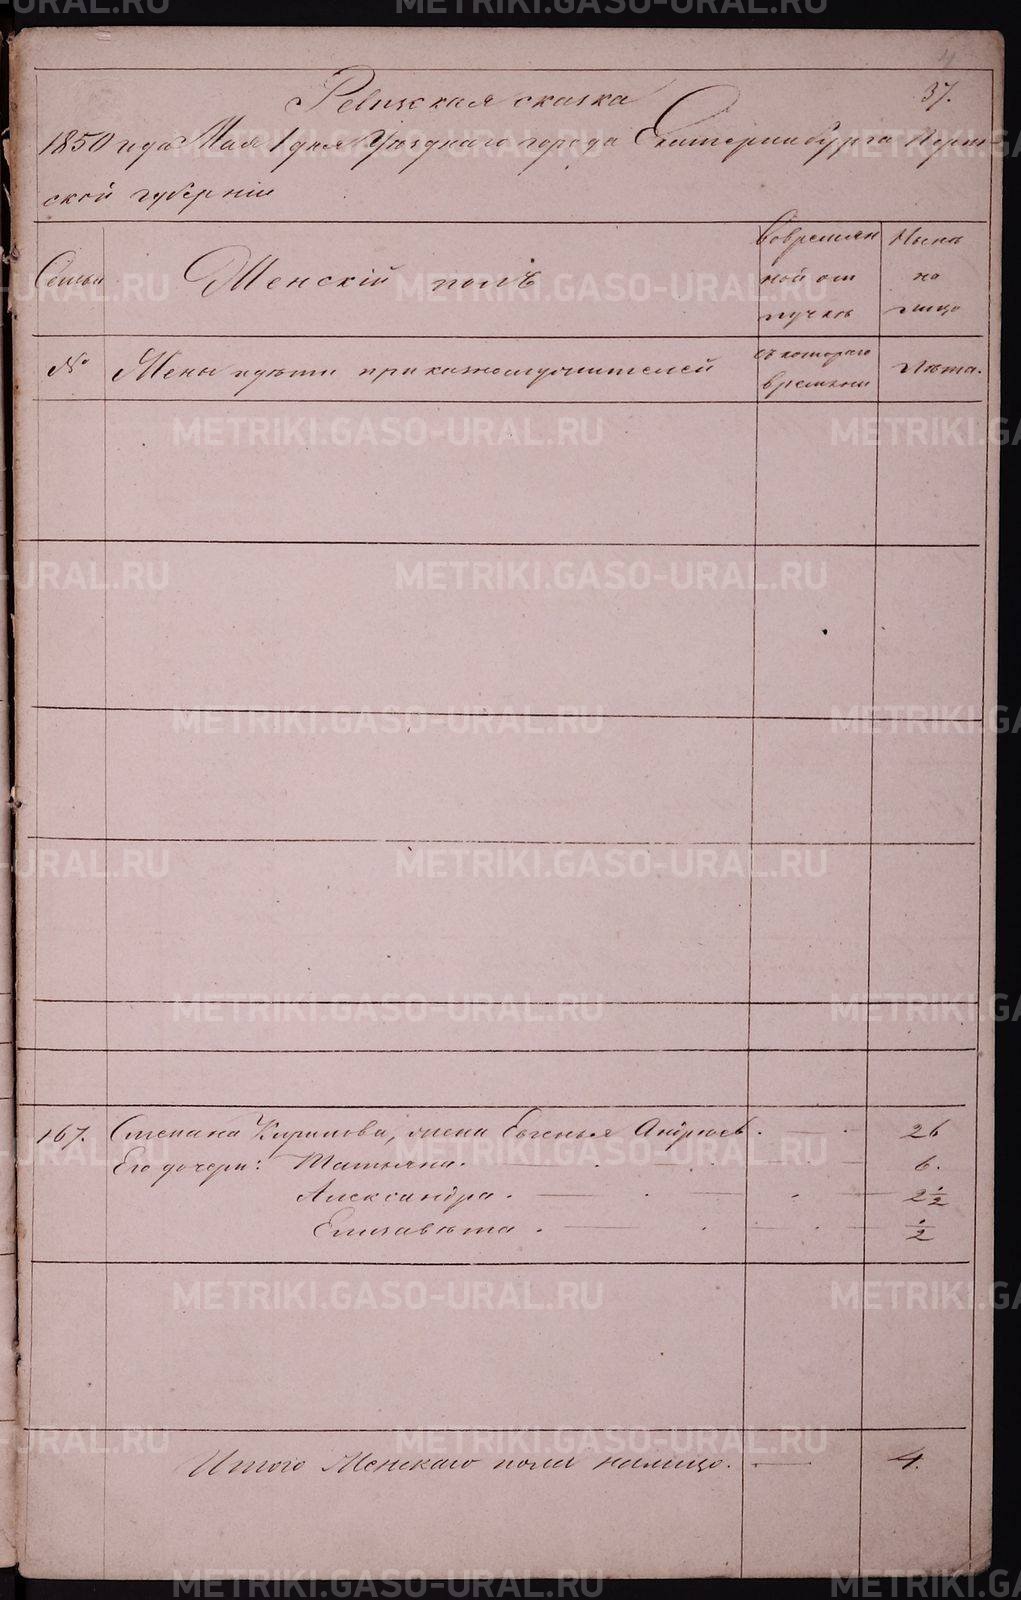 37.
Ревизская сказка
1850 года Мая 1 дня Уезднаго города Екатеринбурга Перм-
ской губерніи
Семьи
Женскій полъ
Во времян
ной от
лучке
Ныне
на
лицо
№
Жены и дети при
съ котораго
времени
Лета.
167. Степана Кирилова, жена Евгенья Андреев. 26
Его дочери: Татьяна. 6.
Александра. 2 1/2
Елизавета. 1/2
Итого Женскаго пола налицо. 4.
METRIKI.GASO-URAL.RU